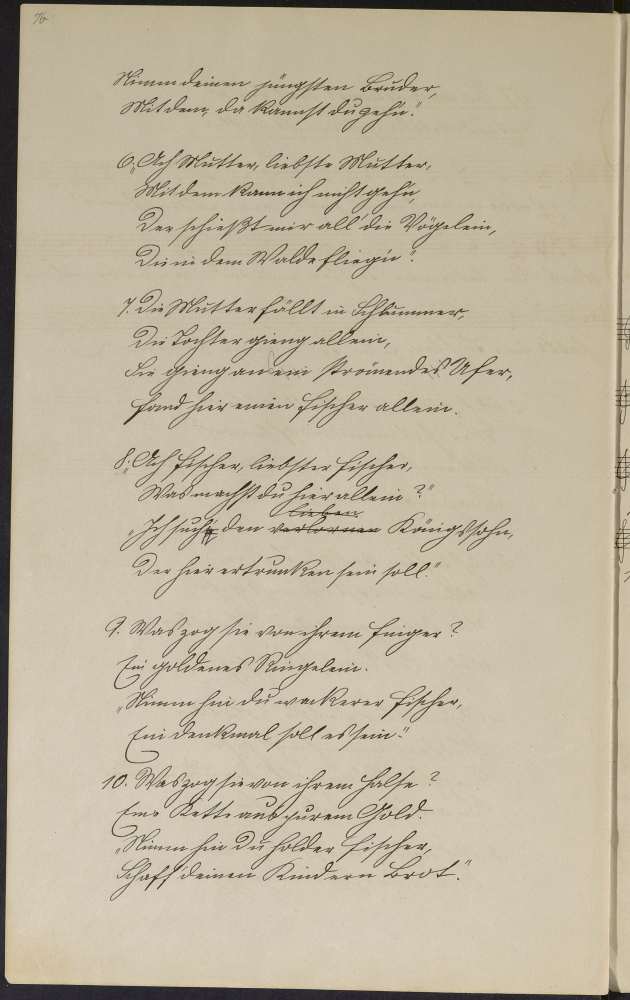 76
Nimm deinen jüngsten Bruder,
Mit dem, da kannst du gehn."
6. „Ach Mutter, liebste Mutter,
Mit dem kann ich nicht gehn,
Der schießt mir all' die Vögelein,
Die in dem Walde fliegn."
7. Die Mutter fällt in Schlummer,
Die Tochter gieng allein,
Sie gieng an ein strömendes Ufer,
Fand hier einen Fischer allein.
8. „Ach Fischer, liebster Fischer,
Was machst du hier allein?"
lieben
„Ich such' den verlornen Königssohn,
Der hier ertrunken sein soll."
9. Was zog sie von ihrem Finger?
Ein goldenes Ringelein.
„Nimm hin du wackerer Fischer,
Ein Denkmal soll es sein."
10. Was zog sie von ihrem Halse?
Eine Kette aus purem Gold.
„Nimm hin du holder Fischer,
Schaff deinen Kindern Brot."